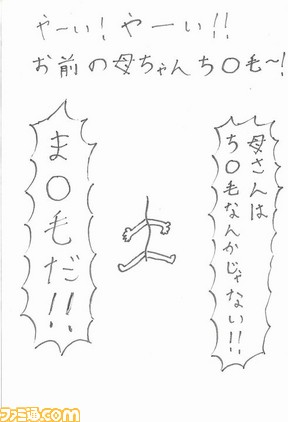 やーい！やーい！！
お前の母ちゃんち〇毛〜！
母さんは
ち〇毛なんかじゃない！！
ま〇毛だ！！
ファミ通.com